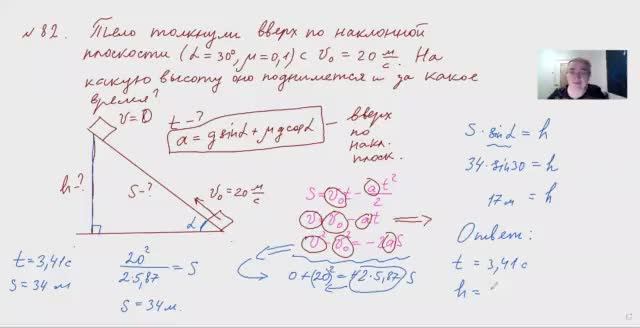 № 82. Тело толкнули вверх по наклонной
плоскости (α = 30°, μ = 0,1) с v₀ = 20 м/с. На
какую высоту оно поднимется и за какое
время?
v = 0
t - ?
a = g sinα + μ g cosα
— вверх
по
накл.
плоск.
h - ?
S - ?
v₀ = 20 м/с
α
S = v₀t - at²/2
v = v₀ - at
v² - v₀² = -2aS
0 + (20)² = +2·5,87 S
20²/2·5,87 = S
S = 34 м.
t = 3,41 с
S = 34 м
S · sinα = h
34 · sin30 = h
17 м = h
Ответ:
t = 3,41 с
h =